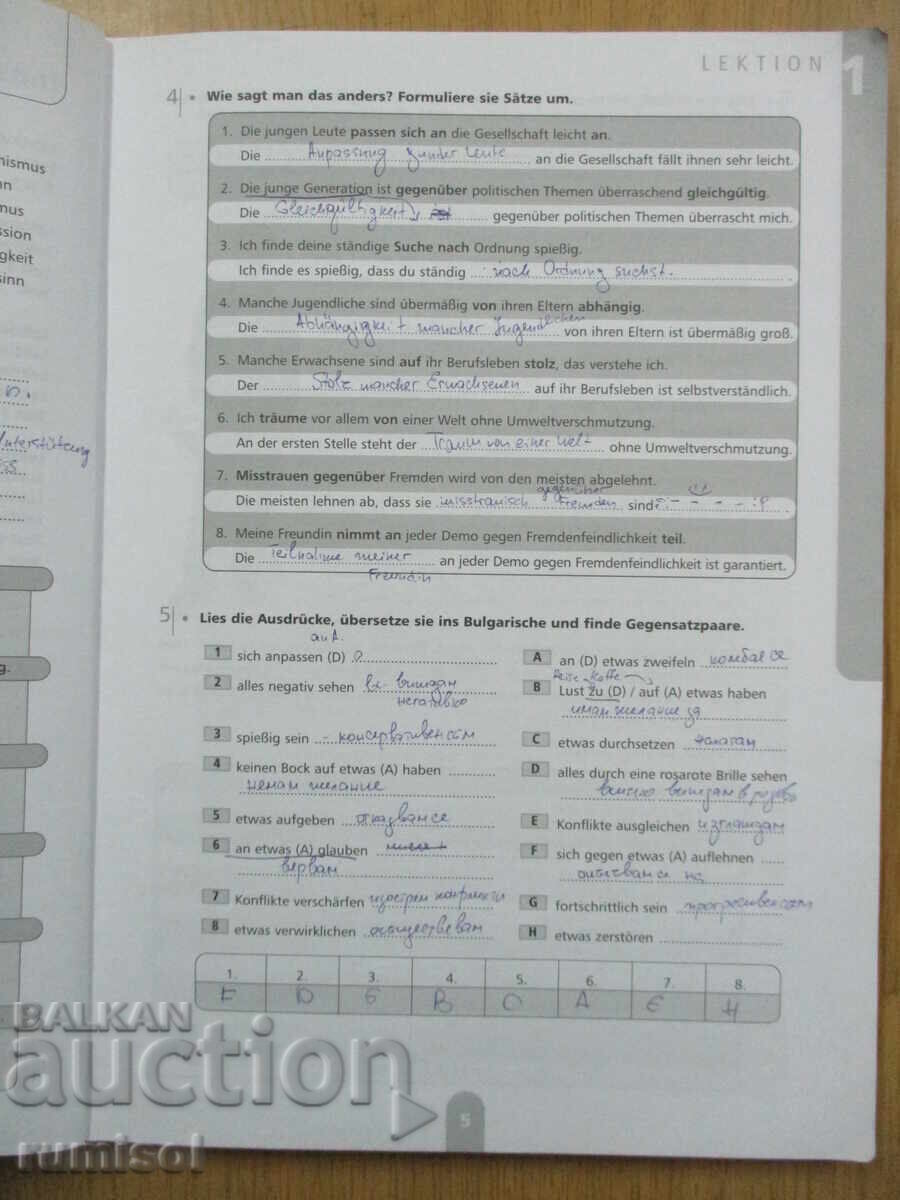 LEKTION 1
nismus
n
mus
sion
gkeit
sinn
n.
Unterstützung
ss.
g.
4 • Wie sagt man das anders? Formuliere sie Sätze um.
1. Die jungen Leute passen sich an die Gesellschaft leicht an.
Die Anpassung junder Leute an die Gesellschaft fällt ihnen sehr leicht.
2. Die junge Generation ist gegenüber politischen Themen überraschend gleichgültig.
Die Gleichgültigkeit gegenüber politischen Themen überrascht mich.
3. Ich finde deine ständige Suche nach Ordnung spießig.
Ich finde es spießig, dass du ständig nach Ordnung suchst.
4. Manche Jugendliche sind übermäßig von ihren Eltern abhängig.
Die Abhängigkeit mancher Jugendlichen von ihren Eltern ist übermäßig groß.
5. Manche Erwachsene sind auf ihr Berufsleben stolz, das verstehe ich.
Der Stolz mancher Erwachsenen auf ihr Berufsleben ist selbstverständlich.
6. Ich träume vor allem von einer Welt ohne Umweltverschmutzung.
An der ersten Stelle steht der Traum von einer Welt ohne Umweltverschmutzung.
7. Misstrauen gegenüber Fremden wird von den meisten abgelehnt.
gegenüber
Die meisten lehnen ab, dass sie misstrauisch Fremden sind
8. Meine Freundin nimmt an jeder Demo gegen Fremdenfeindlichkeit teil.
Die Teilnahme meiner an jeder Demo gegen Fremdenfeindlichkeit ist garantiert.
Freundin
5 • Lies die Ausdrücke, übersetze sie ins Bulgarische und finde Gegensatzpaare.
an A.
1 sich anpassen (D)
2 alles negativ sehen виждам
негативно
3 spießig sein - консервативен съм
4 keinen Bock auf etwas (A) haben
нямам желание
5 etwas aufgeben отказвам се
6 an etwas (A) glauben
вярвам
7 Konflikte verschärfen изострям конфликти
8 etwas verwirklichen осъществявам
A an (D) etwas zweifeln
Reise Kaffe
B Lust zu (D) / auf (A) etwas haben
имам желание за
C etwas durchsetzen налагам
D alles durch eine rosarote Brille sehen
всичко виждам в розово
E Konflikte ausgleichen изглаждам
F sich gegen etwas (A) auflehnen
G fortschrittlich sein прогресивен съм
H etwas zerstören
1. 2. 3. 4. 5. 6. 7. 8.
F D G B C A E H
5
BALKAN
auction
rumisol